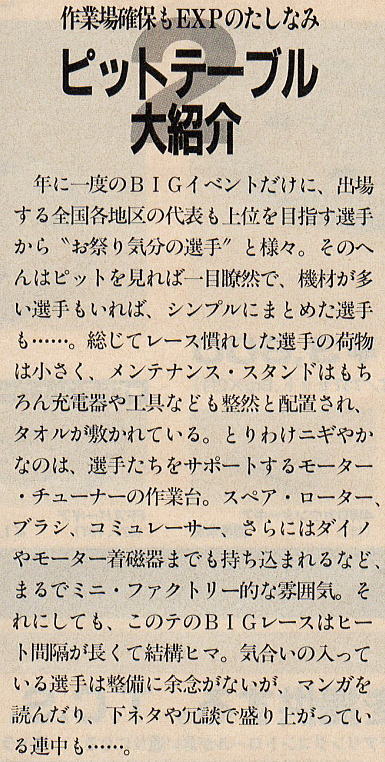 作業場確保もEXPのたしなみ
2
ピットテーブル
大紹介
年に一度のBIGイベントだけに、出場
する全国各地区の代表も上位を目指す選手
から〝お祭り気分の選手〟と様々。そのへ
んはピットを見れば一目瞭然で、機材が多
い選手もいれば、シンプルにまとめた選手
も……。総じてレース慣れした選手の荷物
は小さく、メンテナンス・スタンドはもち
ろん充電器や工具なども整然と配置され、
タオルが敷かれている。とりわけニギやか
なのは、選手たちをサポートするモーター
・チューナーの作業台。スペア・ローター、
ブラシ、コミュレーサー、さらにはダイノ
やモーター着磁器までも持ち込まれるなど、
まるでミニ・ファクトリー的な雰囲気。そ
れにしても、このテのBIGレースはヒー
ト間隔が長くて結構ヒマ。気合いの入って
いる選手は整備に余念がないが、マンガを
読んだり、下ネタや冗談で盛り上がってい
る連中も……。